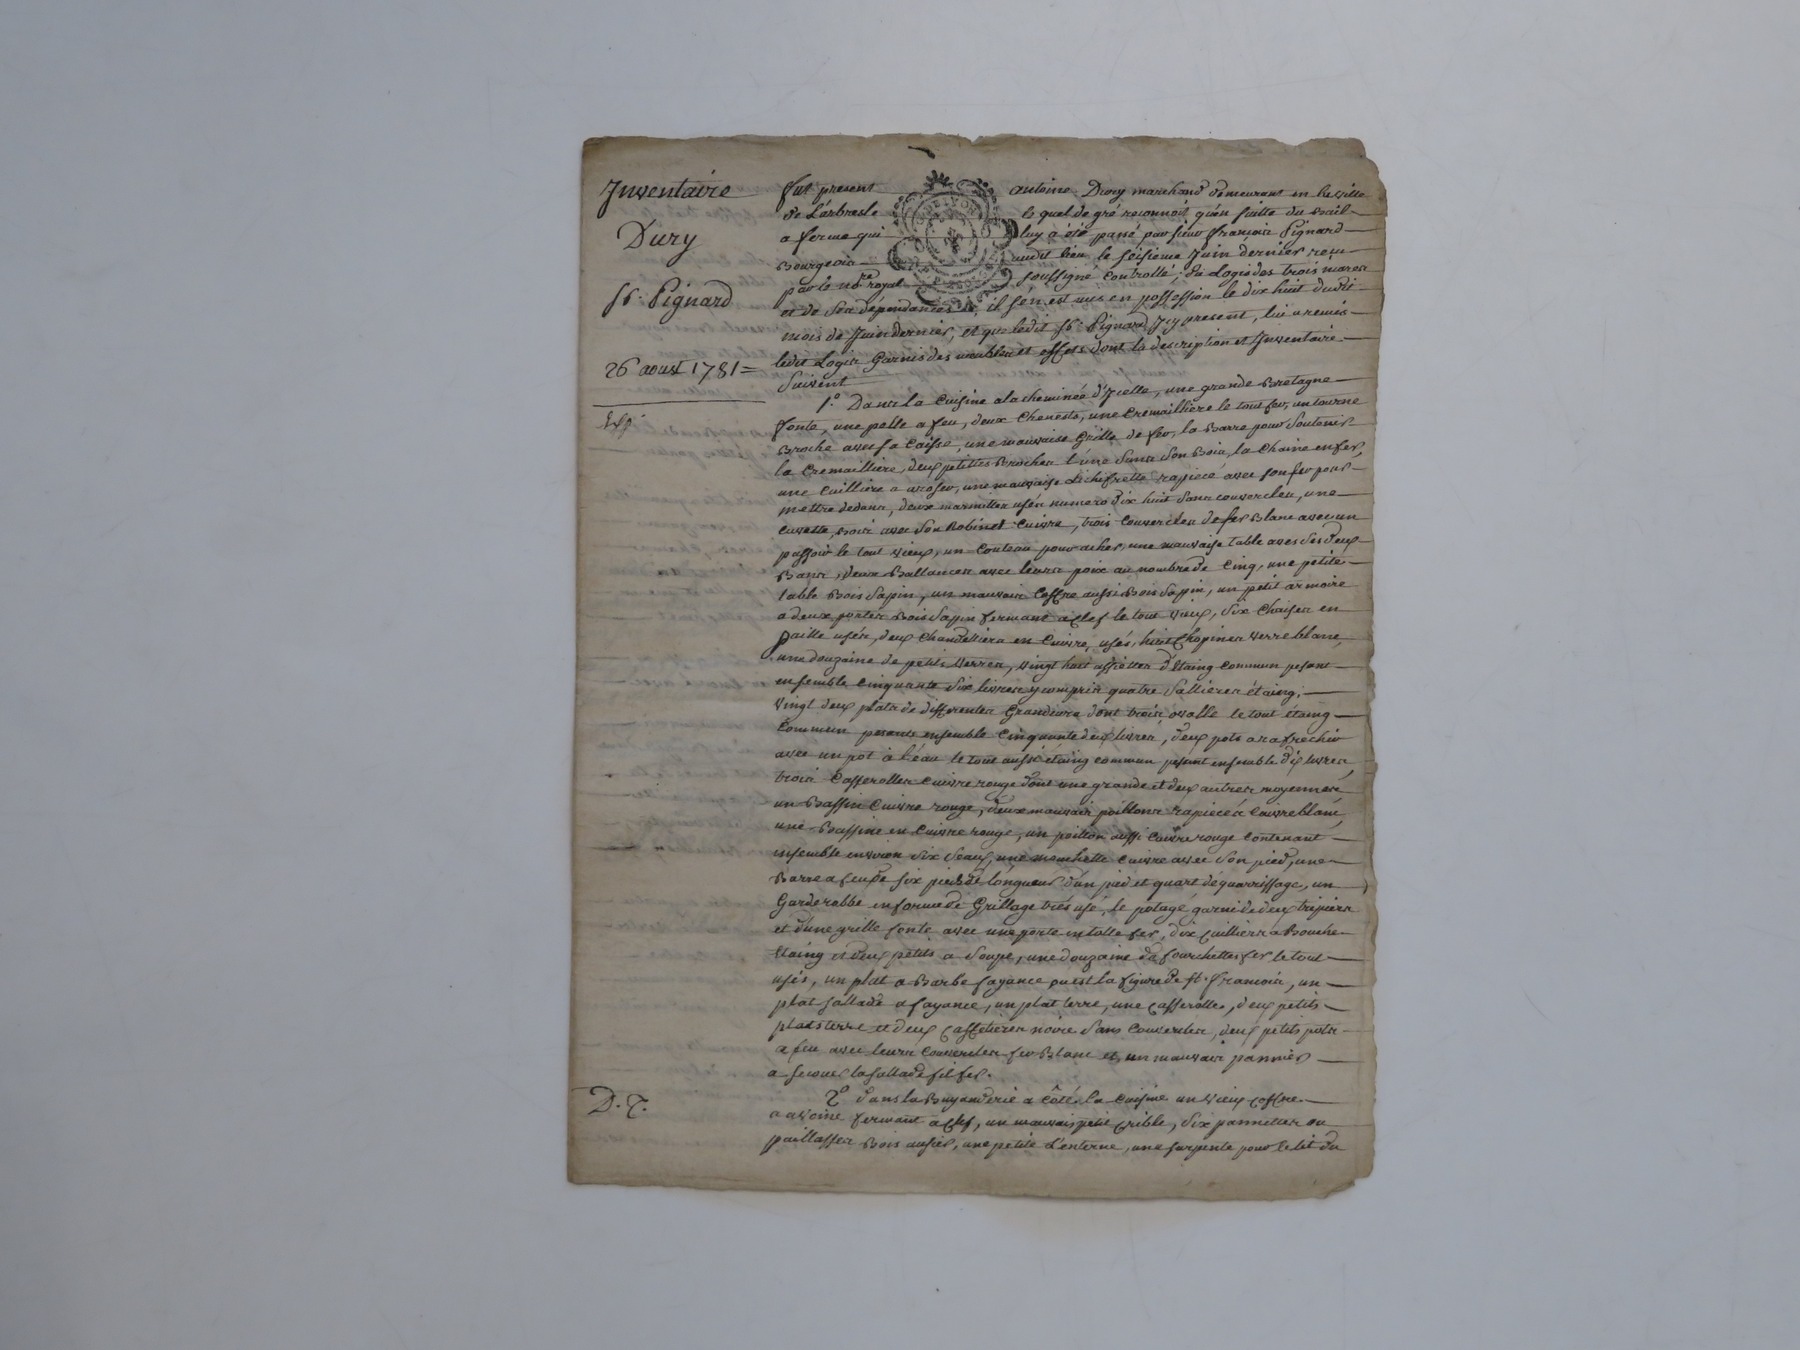 Inventaire
Dury
Sr. Pignard
26 aoust 1781 =
Exp.
D. P.
fut present antoine Dury marchand demeurant en la ville
de L'arbresle le quel de gré reconnoit qu'en suitte du bail
a ferme qui luy a été passé par sieur francois Pignard
Bourgeois audit lieu le seisieme Juin dernier reçu
par le nre royal soussigné controllé, du Logis des trois mores
et de ses dépendances, il s'en est mis en possession le dix huit dudit
mois de Juin dernier, et que ledit Sr. Pignard Icy present, lui a remis
ledit Logis Garnis des meubles et effets dont la description et Inventaire
suivent
1.o Dans la Cuisine a la cheminée d'Icelle, une grande Bretagne
fonte, une pelle a feu, deux Chenests, une Cremaillière le tout fer, un tourne
Broche avec sa Caisse, une mauvaise Grille de fer, la Barre pour soutenir
la Cremaillière, deux petittes Broches l'une sans son Bois, la Chaine en fer,
une Cuillière a aroser, une mauvaise Lichefrette rapiécé avec son fer pour
mettre dedans, deux marmittes usés numero dix huit sans couvercles, une
Cuvette bois avec son Robinet Cuivre, trois Couvercles de fer Blanc avec un
passoir le tout vieux, un Couteau pour acher, une mauvaise Table avec ses deux
Bans, deux Ballances avec leurs poix au nombre de Cinq, une petite
table Bois Sapin, un mauvais Coffre aussi Bois Sapin, un petit armoire
a deux portes Bois Sapin fermant a Clef le tout vieux, Six Chaises en
paille usés, deux Chandelliers en Cuivre, usés, huit Chopines verre blanc,
une douzaine de petits verres, vingt huit assiettes d'Etaing Commun pesant
ensemble Cinquante Six livres y compris quatre Sallieres étaing,
vingt deux plats de differentes Grandeurs dont trois ovalle le tout étaing
Commun pesant ensemble Cinquante deux livres, deux pots a rafrechir
avec un pot à l'eau le tout aussi étaing commun pesant ensemble dix livres,
trois Casserolles Cuivre rouge dont une grande et deux autres moyennes
un Bassin Cuivre rouge, deux mauvais poillons rapiecés Cuivre blanc,
une Bassine en Cuivre rouge, un poillon aussi Cuivre rouge Contenant
ensemble environ Six Seaux, une mouchette Cuivre avec son pied, une
Barre a feu de six pieds de longueur d'un pied et quart d'équarrissage, un
Garderobbe en forme de Grillage très usé, le potagé garni de deux tripiers
et d'une grille fonte avec une porte en tolle fer, dix Cuilliers a Bouche
Etaing et deux petits a Soupe, une douzaine de fourchettes fer le tout
usés, un plat a Barbe fayance ou est la figure de St. francois, un
plat sallade a fayance, un plat terre, une Casserolle, deux petits
plats terre et deux Caffetieres noire sans Couvercles, deux petits pots
a feu avec leurs Couvercles fer Blanc et un mauvais pannier
a secouer la sallade fil fer.
2.o dans la Buyanderie a côté la Cuisine un vieux coffre
a avoine fermant a Clef, un mauvais petit Crible, Six pannetes ou
paillasses Bois ausier, une petite Lenterne, une sarpente pour le lit du